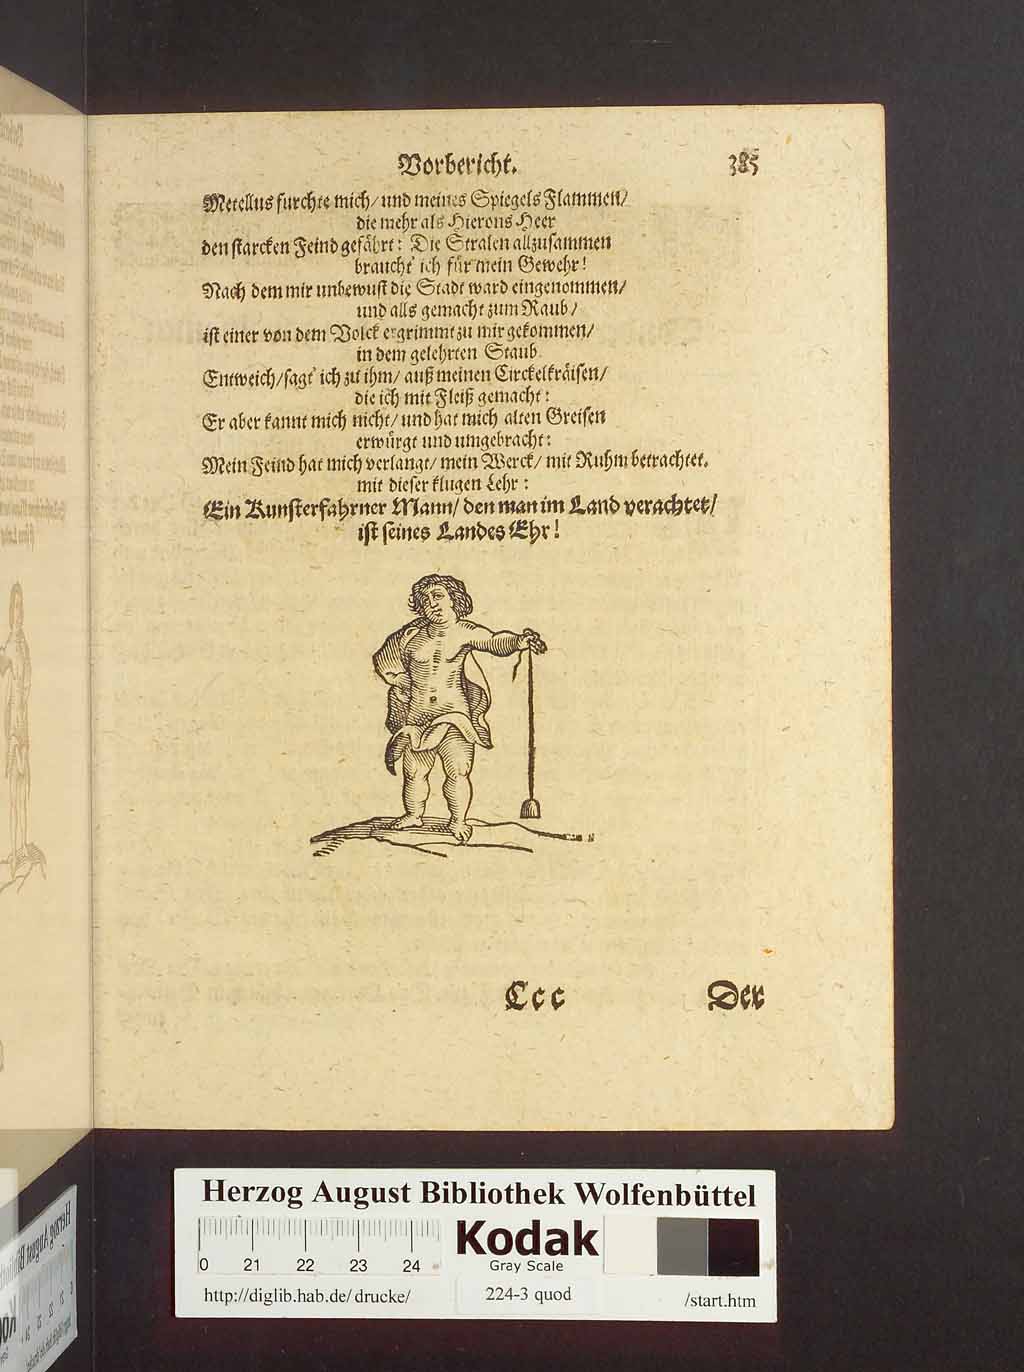 Vorbericht. 385
Metellus furchte mich/ und meines Spiegels Flammen/
die mehr als Hierons Heer
den starcken Feind gefährt: Die Stralen allzusammen
braucht' ich für mein Gewehr!
Nach dem mir unbewust die Stadt ward eingenommen/
und alls gemacht zum Raub/
ist einer von dem Volck ergrimmt zu mir gekommen/
in dem gelehrten Staub.
Entweich/ sagt' ich zu ihm/ auß meinen Circkelkräisen/
die ich mit Fleiß gemacht:
Er aber kannt mich nicht/ und hat mich alten Greisen
erwürgt und umgebracht:
Mein Feind hat mich verlangt/ mein Werck/ mit Ruhm betrachtet.
mit dieser klugen Lehr:
Ein Kunsterfahrner Mann/ den man im Land verachtet/
ist seines Landes Ehr!
Ccc Der
Herzog August Bibliothek Wolfenbüttel
0 21 22 23 24
Kodak
Gray Scale
http://diglib.hab.de/ drucke/
224-3 quod
/start.htm